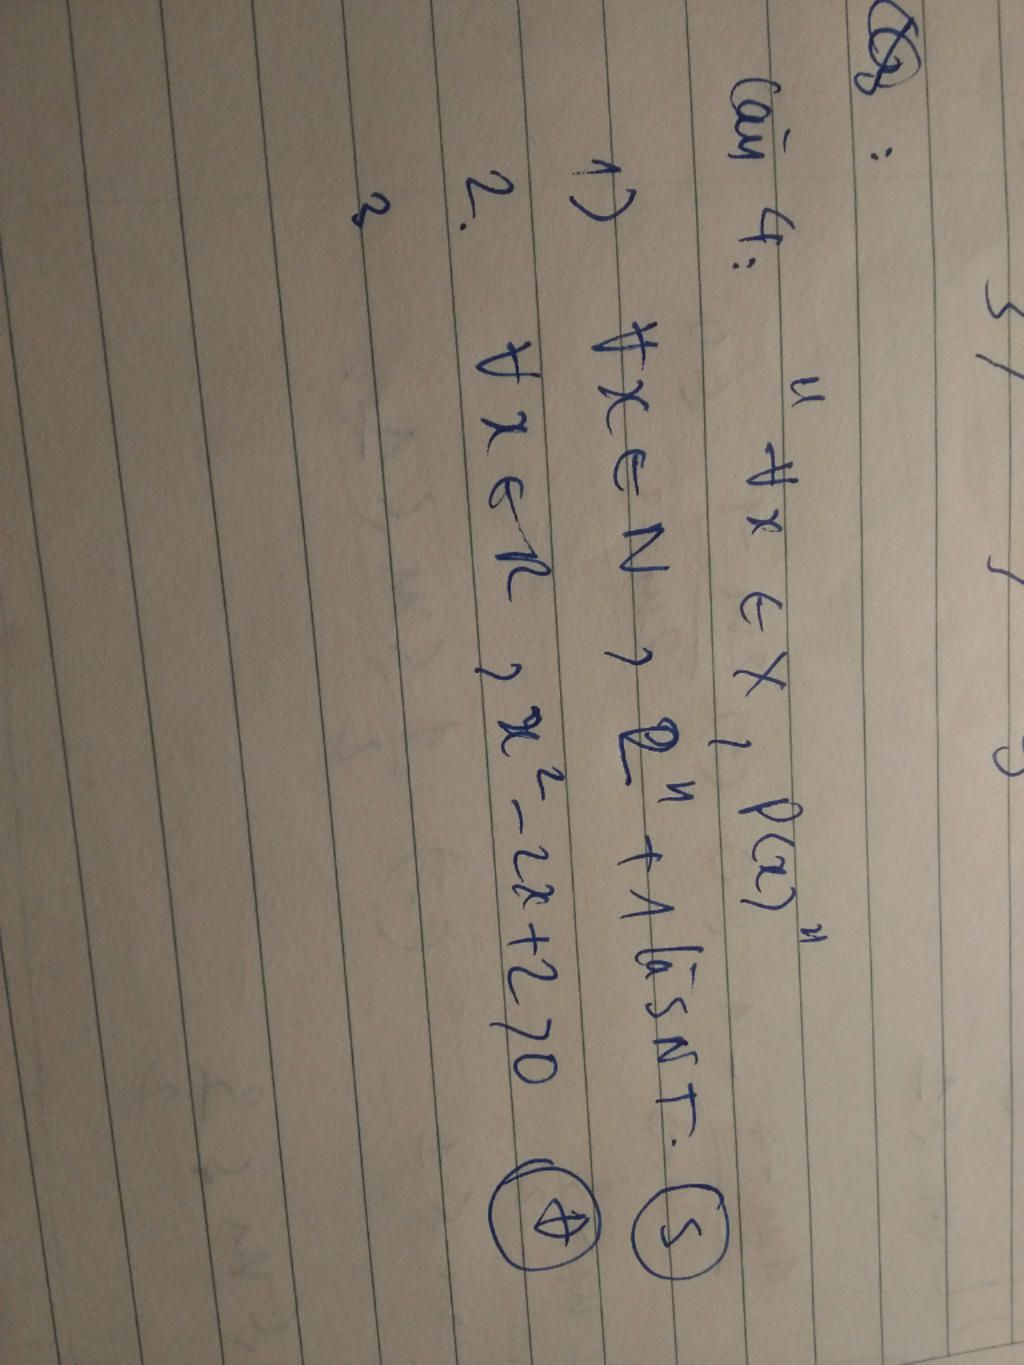 VD:
Câu 4: "∀x ∈ X, P(x)"
1) ∀x ∈ N, 2ⁿ + 1 là SNT. S
2. ∀x ∈ R, x² - 2x + 2 > 0 Đ
3